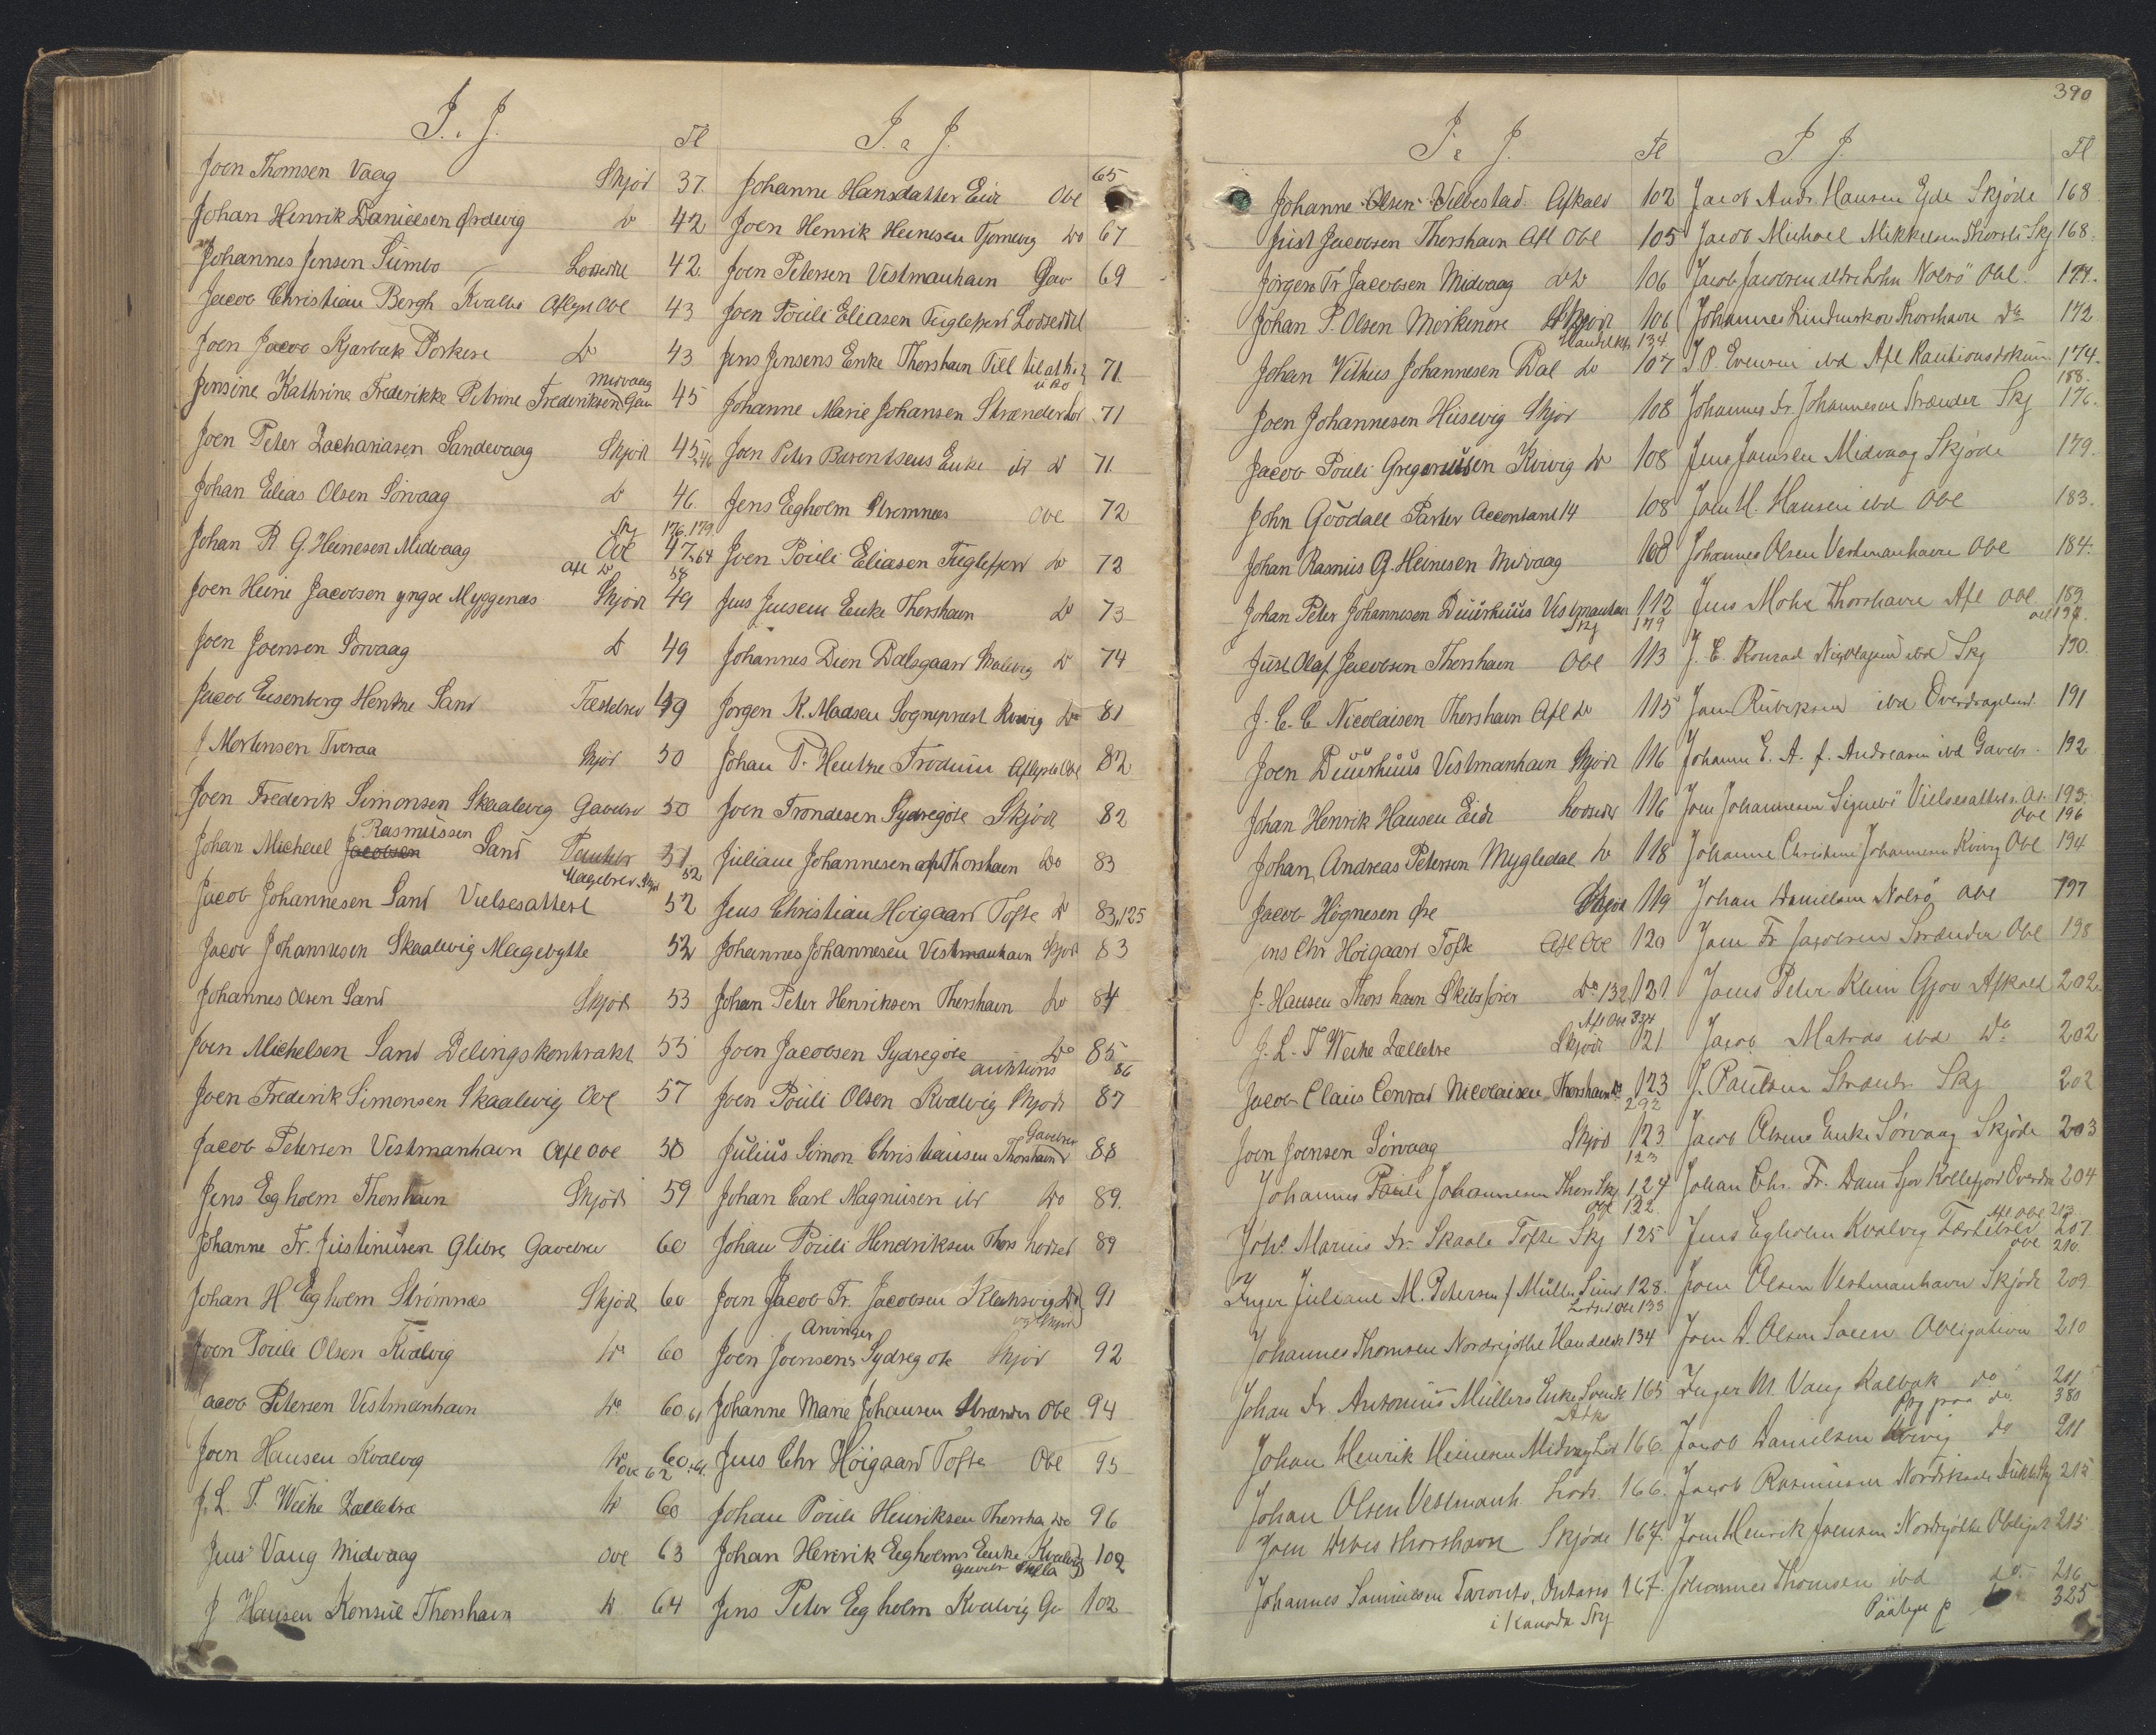 I. J.
Fl
Joen Thomsen Vaag Skjød 37.
Johan Henrik Danielsen Ørdevig do 42
Johannes Jensen Sumbo Lodseddel 42.
Jacob Christian Bergh Kvalbø Aflyst Obl 43
Joen Jacob Kjærbæk Porkere Do 43
Midvaag
Jensine Kathrine Frederikke Petrine Frederiksen Gav 45
Joen Peter Zachariasen Sandevaag Skjøde 45,46
Johan Elias Olsen Sørvaag Do 46
Skj 176.179
Johan R. G. Heinesen Midvaag Obl 47.64
Afl Do 58
Joen Heine Jacobsen yngre Myggenæs Skjøde 49
Joen Joensen Sørvaag D 49
Jacob Eisenberg Hentze Sand Fæstebrev 49
J Mortensen Tveraa Skjød 50
Joen Frederik Simonsen Skaalevig Gavebrev 50
Rasmussen
Johan Michael Jacobsen Sand 51
Magebrev Skjød 52
Jacob Johannesen Sand Vielsesattest 52
Jacob Johannesen Skaalevig Magebytte 52
Johannes Olsen Sand Skjøde 53
Joen Michelsen Sand Delingskontrakt 55
Joen Frederik Simonsen Skaalevig Obl 57
Jacob Petersen Vestmanhavn Afl Obl 58
Jens Egholm Thorshavn Skjøde 59
Johanne Fr. Justinusen Glibre Gavebrev 60
Johan H Egholm Strømnæs Skjøde 60
Joen Pouli Olsen Kvalvig Do 60
Jacob Petersen Vestmanhavn Do 60,61
Joen Hansen Kvalvig Do 60.61.
Obl 62
J. L. T. Weihe Zelletræ Do 60
Jens Vang Midvaag Obl 63
J Hansen Konsul Thorshavn Do 64
I & J.
65
Johanne Hansdatter Eide Obl
Joen Henrik Heinesen Tjørnevig Do 67
Joen Petersen Vestmanhavn Gav 69
Joen Pouli Eliasen Fuglefjord Lodseddel
Jens Jensens Enke Thorshavn Till til at h. i 71
u Bo
Johanne Marie Johansen Strænder Lod 71
Joen Peter Barentsens Enke ib D 71
Jens Egholm Strømnæs Obl 72
Joen Pouli Eliasen Fuglefjord Do 72
Jens Jensens Enke Thorshavn Do 73
Johannes Dion Dalsgaard Skaalevig Do 74
Jørgen K. Madsen Sognepræst Kvivig Do 81
Johan P. Hentze Frodum Aflyste Obl 82
Joen Trondesen Sydregøte Skjøde 82
Juliane Johannesen Thorshavn Do 83
Jens Christian Høigaard Tofte D 83,125
Johannes Johannesen Vestmanhavn Skjød 83
Johan Peter Henriksen Thorshavn Do 84
Joen Jacobsen Sydregøte Do 85
auktions 86
Joen Pouli Olsen Kvalvig Skjøde 87
Gavebrev
Julius Simon Christiansen Thorshavn 88
Johan Carl Magnusen ib Do 89.
Johan Pouli Hendriksen Thors Lodsed 89
Joen Jacob Fr. Jacobsen Klaksvig Do 91
og Skjød
Arvinger
Joen Joensens Sydregøte Skjød 92
Johanne Marie Johansen Strænder Obl 94
Jens Chr Höigaard Tofte Obl 95
Johan Pouli Heinriksen Thorsha Do 96
Johan Henrik Egholms Enke Kvalvig 102
Gavebr
Jens Peter Egholm Kvalvig Ga 102
I & J.
Fl
Johanne Olsen Velbestad Afkald 102
Just Jacobsen Thorshavn Afl Obl 105
Jørgen Fr Jacobsen Midvaag Do Do 106
Johan P. Olsen Morkenøre Skjøde 106
Handelsb 134
Johan Vilhus Johannesen Dal Do 107
Joen Johannesen Husevig Skjøde 108
Jacob Pouli Gregoriusen Kvivig Do 108
John Goodall Parter Accontant 14 108
Johan Rasmus G. Heinesen Midvaag 108
Johan Peter Johannesen Duurhuus Vestmanhavn 112
Skj 179
Just Olaf Jacobsen Thorshavn Obl 113
J. C. C Nicolaisen Thorshavn Afl Do 115
Joen Duurhuus Vestmanhavn Skjøde 116
Johan Henrik Hansen Eide Lodsed 116
Johan Andreas Petersen Mygledal Do 118
Jacob Høgnesen Øre Skjøde 119
ens Chr Høigaard Tofte Afl Obl 120
J. Hansen Thorshavn Skibsfører Do 132, 121
Afl Obl 334
J. L. T Weihe Zelletræ Skjøde 121
Jacob Claus Conrad Nicolaisen Thorshavn Do 123
292
Joen Joensen Sørvaag Skjød 123
123
Johannes Pauli Johannesen Thors Skj 124
Obl 122
Johs Marius Fr. Skaale Tofte Skj 125
Inger Juliane M. Petersen f Müller Sund 128.
Lodsed Obl 133
Johannes Thomsen Nordregøthe Handelsb 134
Johan Fr. Antonius Müllers Enke Sunde 165
Adk
Johan Henrik Heinesen Midvaag Lod 166
Johan Olsen Vestmanh Lods. 166.
Joen Debes Thorshavn Skjøde 167.
Johannes Samuelsen Taronto, Ontario 167.
i Kanada Skj
390
I J.
Fl
Jacob Andr. Hansen Ejde Skjøde 168
Jacob Michael Mikkelsen Thorsh Skj 168.
Jacob Jacobsen Nolsö Obl. 171.
Johannes Lindenskov Thorshavn Do 172
J. P. Evensen ibd Afl Kautionsdokum. 174.
188.
Johannes Fr. Johannesen Strænder Skj 176.
Jens Joensen Midvaag Skjøde 179.
Joen M. Hansen ibd Obl 183.
Johannes Olsen Vestmanhavn Obl 184.
Jens Mohr Thorshavn Afl Obl 189
obl 194.
J. C. Konrad ibd Skj 190.
Joen Rubeksen ibd Overdragelsesd. 191
Johanne E. A. f. Andreasen ibd Gavebr. 192
Joen Johannesen Signebö Vielsesattest 193.
Obl 196
Johanne Christine Johannesen Kvivig Obl 194
Johan Danielsen Nolsö Obl 197
Joen Fr Jacobsen Strænder Obl 198
Joens Peter Klein Gjov Afkald 202
Jacob Matras ibd Do 202
J. Paulsen Strændr. Skj 202
Jacob Olsens Enke Sørvaag Skjøde 203
Johan Chr. Fr. Dam Kollefjord Overdra 204
Afl Obl 213
Jens Egholm Kvalvig Fæstebrev 207
Obl 210
Joen Olsen Vestmanhavn Skjøde 209
Joen D. Olsen Saxen Obligation 210
Inger M Vang Kalbak do 211
Paj paa do. 380
Jacob Danielsen Kvivig do 211
Jacob Rasmussen Nordskaale Skj 212
Joen Henrik Joensen Nordregøthe Obligat 215
Johannes Thomsen ibd do. 216
Paategn p 325